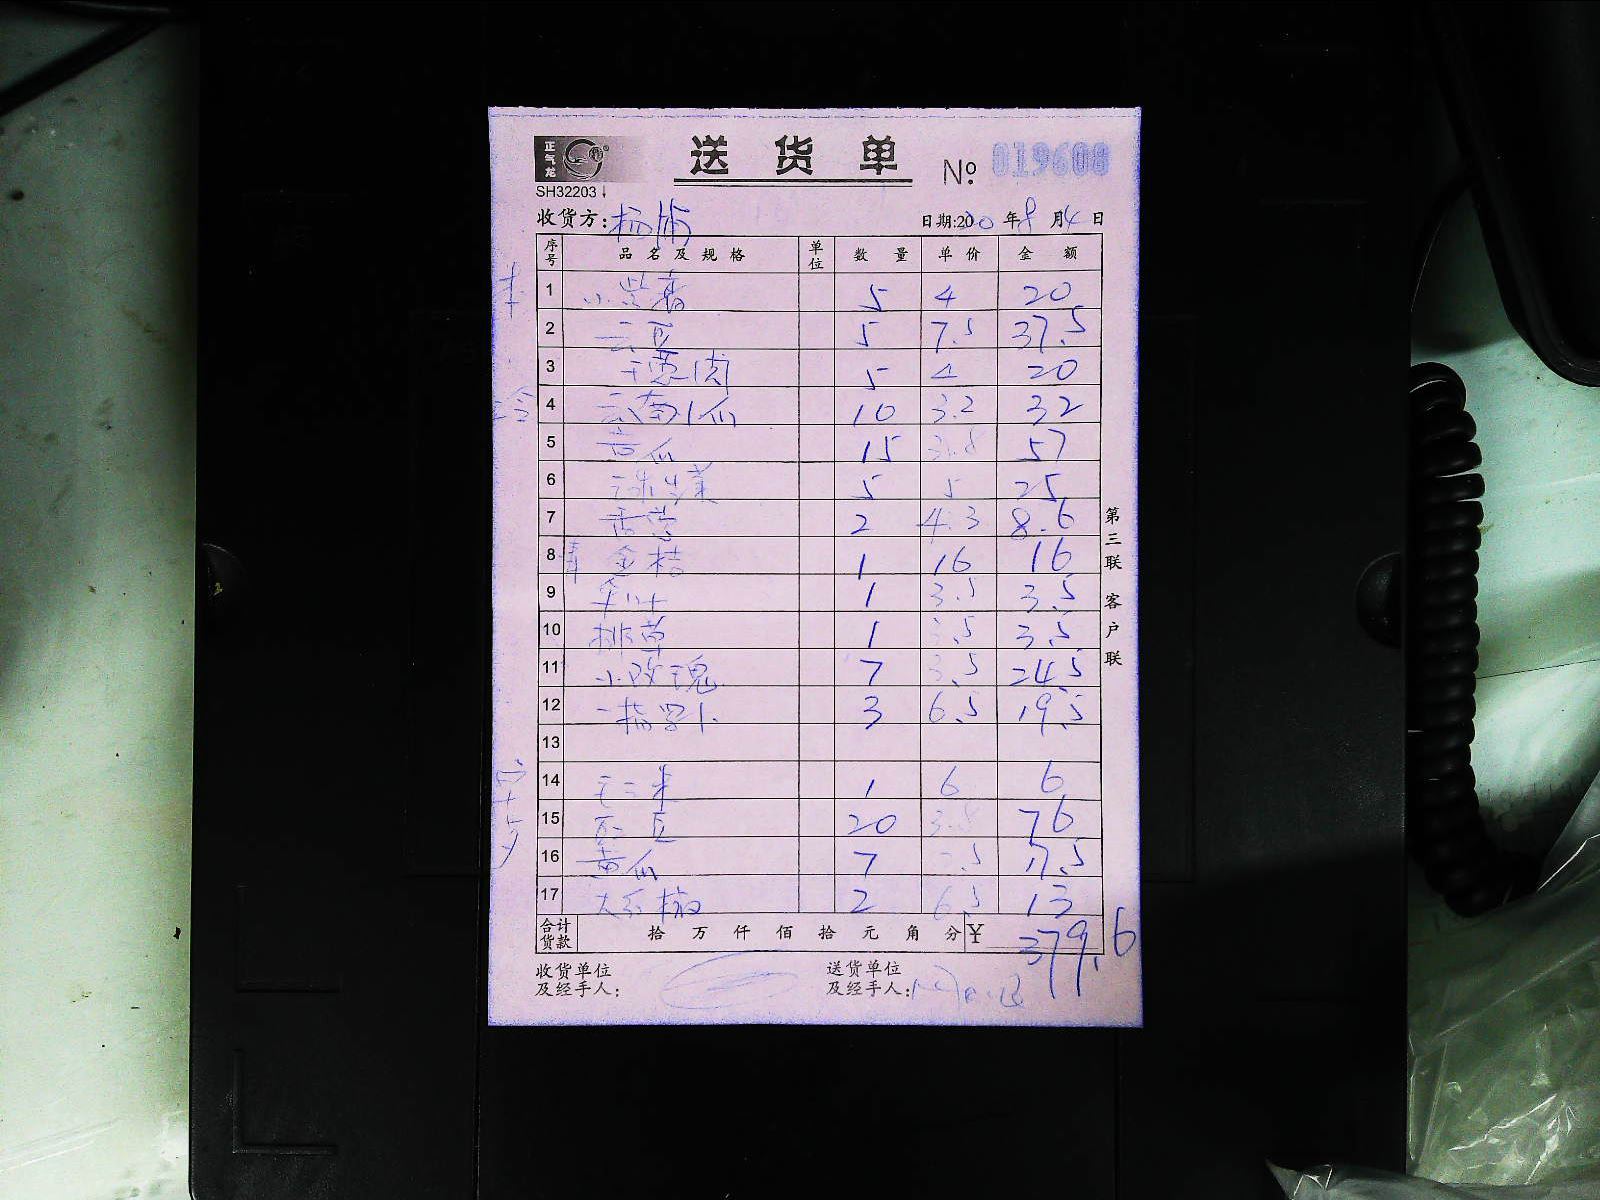 正气龙
送货单 No 019608
SH32203
收货方: 日期:20 年 8 月 4 日
序号 品名及规格 单位 数量 单价 金额
1 小紫薯 5 4 20
2 云豆 5 7.5 37.5
3 5 4 20
4 云南小瓜 10 3.2 32
5 苦瓜 15 3.8 57
6 球生菜 5 5 25
7 香芹 2 4.3 8.6
8 青金桔 1 16 16
9 1 3.5 3.5
10 排草 1 3.5 3.5
11 小玫瑰 7 3.5 24.5
12 手指萝卜 3 6.5 19.5
13
14 玉米 1 6 6
15 豆 20 3.8 76
16 黄瓜 7 2.5 17.5
17 大红椒 2 6.5 13
合计货款 拾 万 仟 佰 拾 元 角 分 ¥ 379.6
收货单位及经手人:
送货单位及经手人:
第三联 客户联